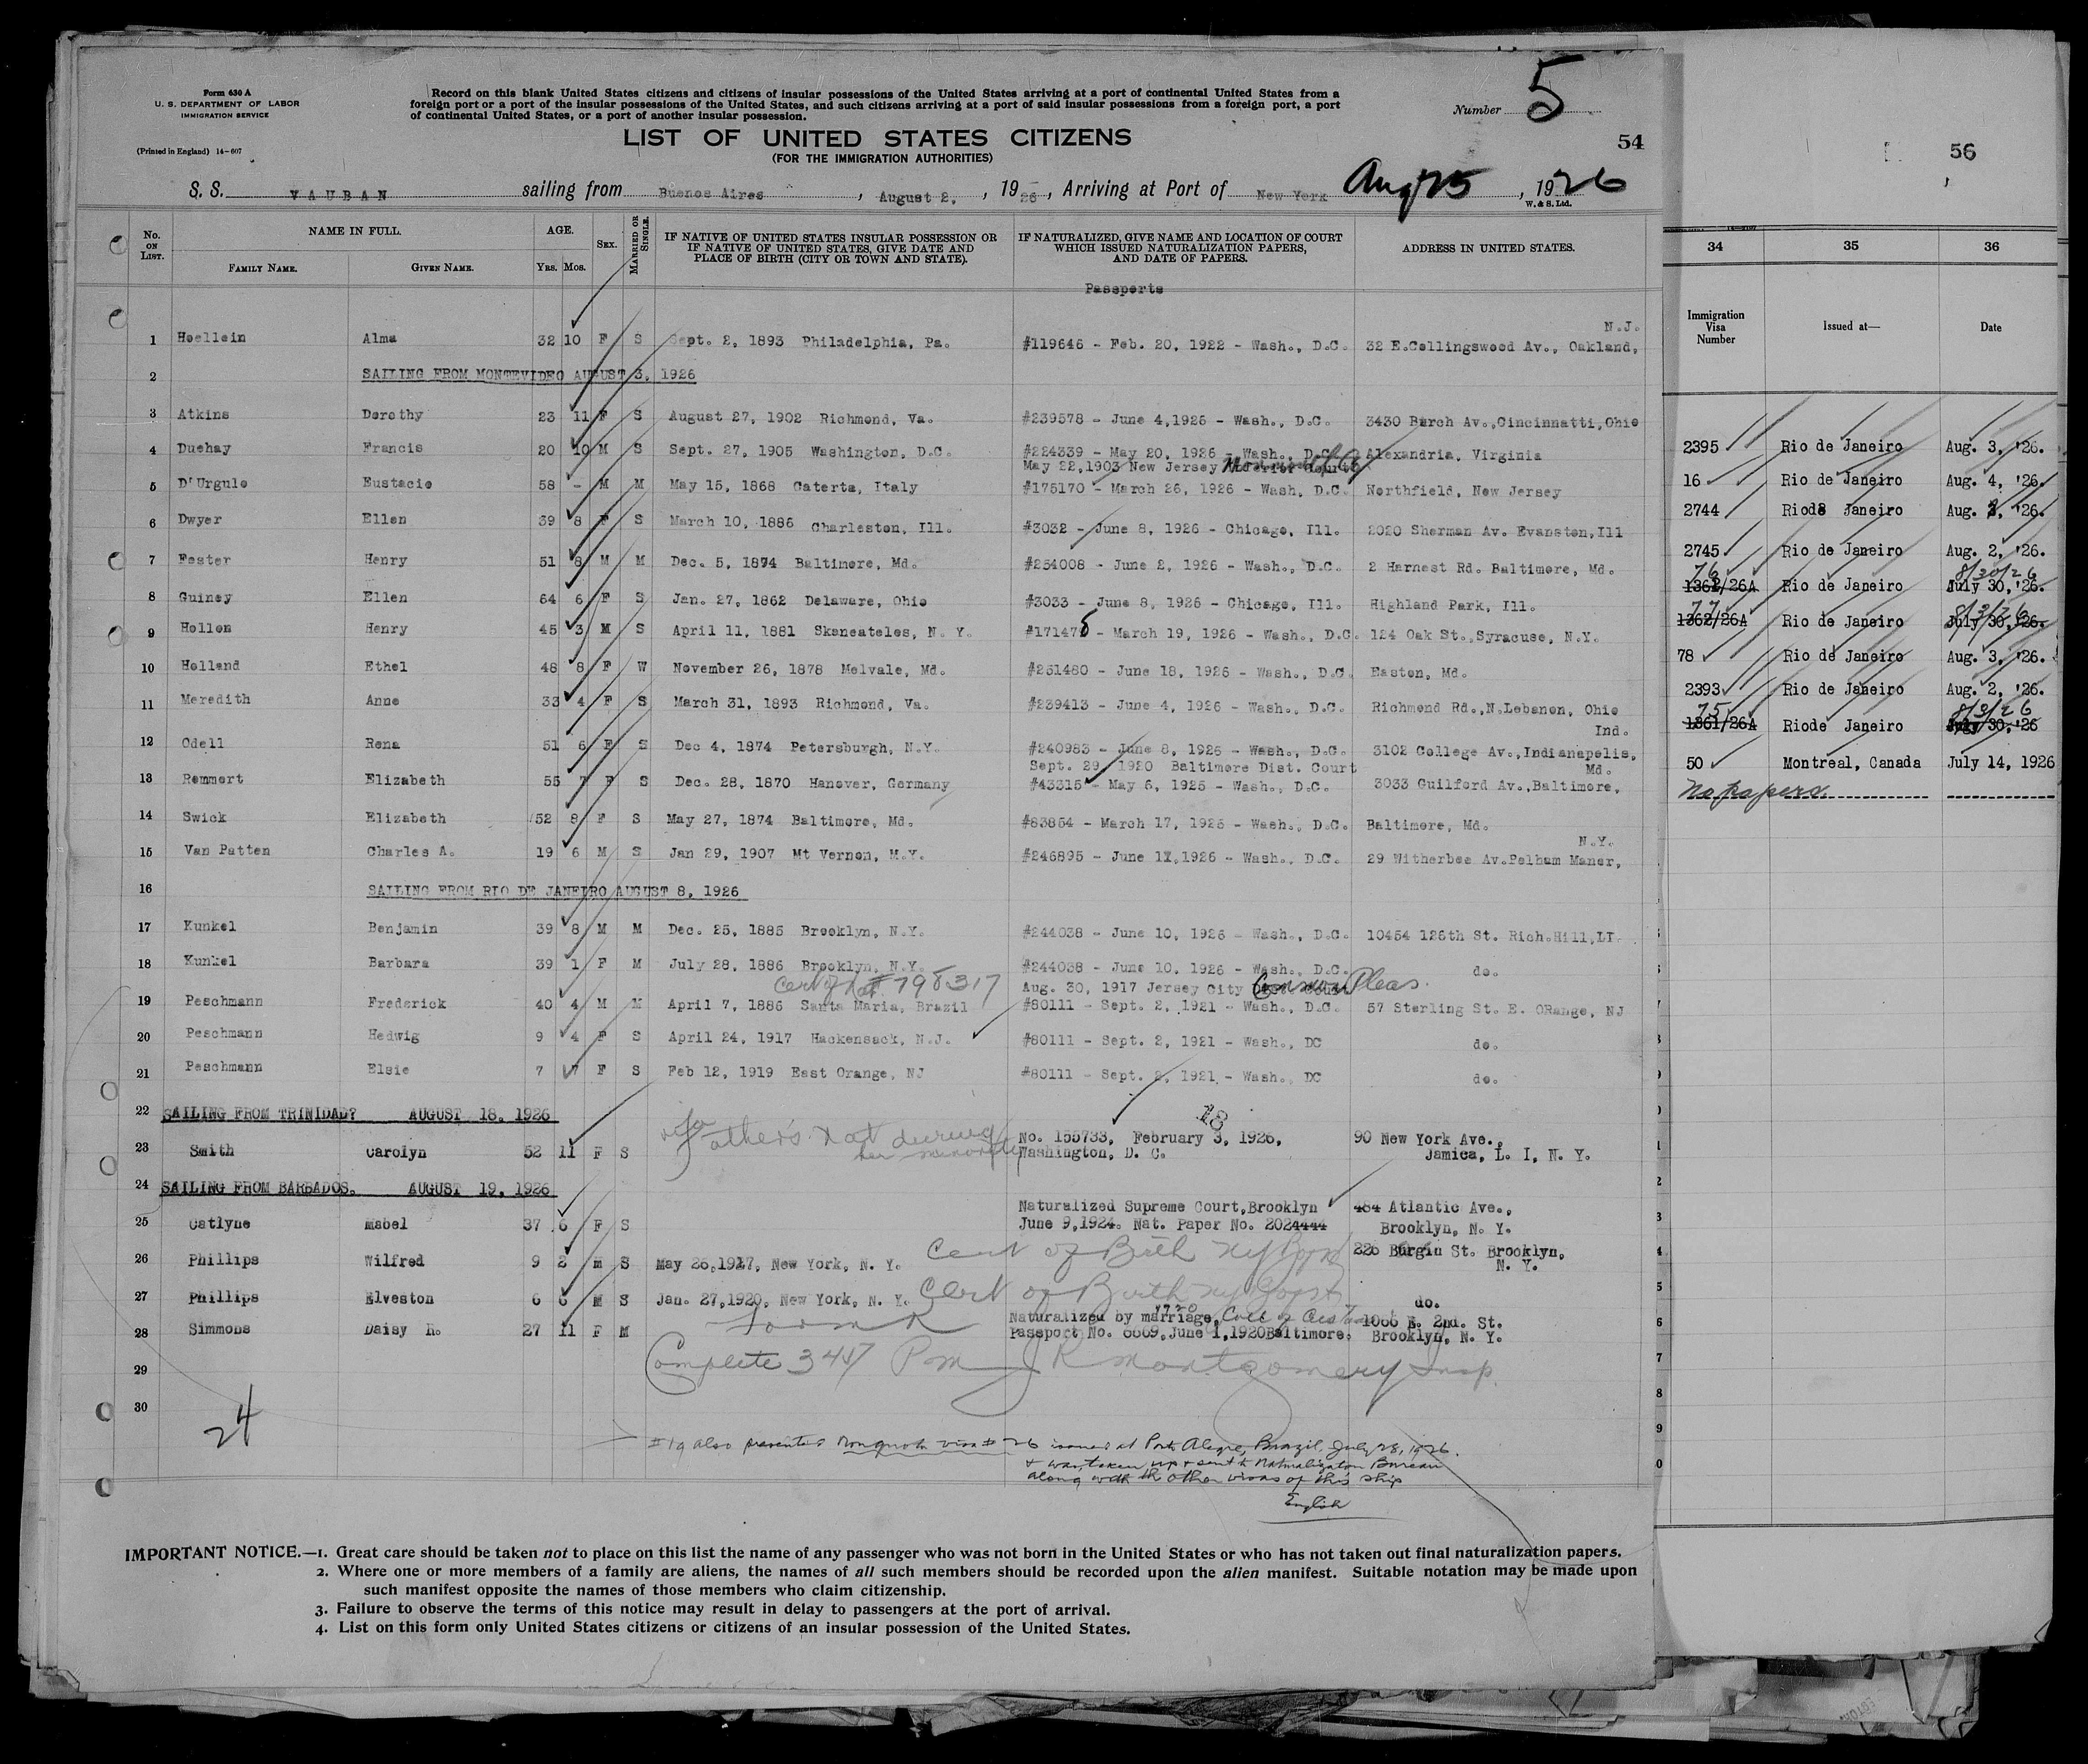 Form 630 A
U. S. DEPARTMENT OF LABOR
IMMIGRATION SERVICE
(Printed in England) 14-607
Record on this blank United States citizens and citizens of insular possessions of the United States arriving at a port of continental United States from a
foreign port or a port of the insular possessions of the United States, and such citizens arriving at a port of said insular possessions from a foreign port, a port
of continental United States, or a port of another insular possession.
Number 5
54
LIST OF UNITED STATES CITIZENS
(FOR THE IMMIGRATION AUTHORITIES)
S. S. VAUBAN sailing from Buenos Aires, August 2, 1926, Arriving at Port of New York Aug 25, 1926
W. & S. Ltd.
No. ON LIST. NAME IN FULL. FAMILY NAME. GIVEN NAME. AGE. YRS. MOS. SEX. MARRIED OR SINGLE. IF NATIVE OF UNITED STATES INSULAR POSSESSION OR IF NATIVE OF UNITED STATES, GIVE DATE AND PLACE OF BIRTH (CITY OR TOWN AND STATE). IF NATURALIZED, GIVE NAME AND LOCATION OF COURT WHICH ISSUED NATURALIZATION PAPERS, AND DATE OF PAPERS. ADDRESS IN UNITED STATES.
Passports
N.J.
1 Hoellein Alma 32 10 F S Sept. 2, 1893 Philadelphia, Pa. #119646 - Feb. 20, 1922 - Wash., D.C. 32 E.Collingswood Av., Oakland,
2 SAILING FROM MONTEVIDEO AUGUST 3, 1926
3 Atkins Dorothy 23 11 F S August 27, 1902 Richmond, Va. #239578 - June 4,1926 - Wash., D.C. 3430 Burch Av.,Cincinnatti,Ohio
4 Duehay Francis 20 10 M S Sept. 27, 1905 Washington, D.C. #224339 - May 20, 1926 - Wash., D.C. Alexandria, Virginia
May 22,1903 New Jersey
5 D'Urgulo Eustacio 58 - M M May 15, 1868 Caterta, Italy #175170 - March 26, 1926 - Wash, D.C. Northfield, New Jersey
6 Dwyer Ellen 39 8 F S March 10, 1886 Charleston, Ill. #3032 - June 8, 1926 - Chicago, Ill. 2020 Sherman Av. Evanston,Ill
7 Foster Henry 51 8 M M Dec. 5, 1874 Baltimore, Md. #254008 - June 2, 1926 - Wash., D.C. 2 Harnest Rd. Baltimore, Md.
8 Guiney Ellen 64 6 F S Jan. 27, 1862 Delaware, Ohio #3033 - June 8, 1926 - Chicago, Ill. Highland Park, Ill.
9 Hollon Henry 45 3 M S April 11, 1881 Skaneateles, N. Y. #171475 - March 19, 1926 - Wash., D.C. 124 Oak St.,Syracuse, N.Y.
10 Holland Ethel 48 8 F W November 26, 1878 Melvale, Md. #251480 - June 18, 1926 - Wash., D.C. Easton, Md.
11 Meredith Anne 33 4 F S March 31, 1893 Richmond, Va. #239413 - June 4, 1926 - Wash., D.C. Richmond Rd.,N.Lebanon, Ohio
Ind.
12 Odell Rena 51 6 F S Dec 4, 1874 Petersburgh, N.Y. #240983 - June 8, 1926 - Wash., D.C. 3102 College Av.,Indianapolis,
Sept. 29, 1920 Baltimore Dist. Court Md.
13 Remmert Elizabeth 55 7 F S Dec. 28, 1870 Hanover, Germany #43315 - May 6, 1925 - Wash., D.C. 3033 Guilford Av.,Baltimore,
14 Swick Elizabeth 52 8 F S May 27, 1874 Baltimore, Md. #83854 - March 17, 1925 - Wash., D.C. Baltimore, Md.
N.Y.
15 Van Patten Charles A. 19 6 M S Jan 29, 1907 Mt Vernon, N.Y. #246895 - June 11,1926 - Wash., D.C. 29 Witherbee Av.Pelham Manor,
16 SAILING FROM RIO DE JANEIRO AUGUST 8, 1926
17 Kunkel Benjamin 39 8 M M Dec. 25, 1885 Brooklyn, N.Y. #244038 - June 10, 1926 - Wash., D.C. 10454 126th St. Rich.Hill,LI.
18 Kunkel Barbara 39 1 F M July 28, 1886 Brooklyn, N.Y. #244038 - June 10, 1926 - Wash., D.C. do.
Cert of Nat # 795317 Aug. 30, 1917 Jersey City Common Pleas.
19 Peschmann Frederick 40 4 M M April 7, 1886 Santa Maria, Brazil #80111 - Sept. 2, 1921 - Wash., D.C. 57 Sterling St. E. ORange, NJ
20 Peschmann Hedwig 9 4 F S April 24, 1917 Hackensack, N.J. #80111 - Sept. 2, 1921 - Wash., DC do.
21 Peschmann Elsie 7 7 F S Feb 12, 1919 East Orange, NJ #80111 - Sept. 2, 1921 - Wash., DC do.
22 SAILING FROM TRINIDAD? AUGUST 18, 1926
13
father's nat during her minority
23 Smith Carolyn 52 11 F S No. 155733, February 3, 1926, 90 New York Ave.,
Washington, D. C. Jamica, L. I, N. Y.
24 SAILING FROM BARBADOS. AUGUST 19, 1926
Naturalized Supreme Court,Brooklyn 484 Atlantic Ave.,
25 Catlyne Mabel 37 6 F S June 9,1924. Nat. Paper No. 2024444 Brooklyn, N. Y.
Cert of Birth 226 Burgin St. Brooklyn,
26 Phillips Wilfred 9 2 M S May 26,1917, New York, N. Y. N. Y.
27 Phillips Elveston 6 6 M S Jan. 27,1920, New York, N. Y. Cert of Birth do.
Naturalized by marriage, 1066 E. 2nd. St.
28 Simmons Daisy R. 27 11 F M Passport No. 6669,June 1,1920Baltimore. Brooklyn, N. Y.
29 Complete 345 PM J R Montgomery Insp.
30
24
#19 also presented nonquota visa # 26 issued at Porto Alegre, Brazil, July 28, 1926.
& was taken up & sent to Naturalization Bureau
along with the other visas of this ship
English
IMPORTANT NOTICE.—1. Great care should be taken not to place on this list the name of any passenger who was not born in the United States or who has not taken out final naturalization papers.
2. Where one or more members of a family are aliens, the names of all such members should be recorded upon the alien manifest. Suitable notation may be made upon
such manifest opposite the names of those members who claim citizenship.
3. Failure to observe the terms of this notice may result in delay to passengers at the port of arrival.
4. List on this form only United States citizens or citizens of an insular possession of the United States.
56
34 35 36
Immigration Visa Number Issued at— Date
2395 Rio de Janeiro Aug. 3, '26.
16 Rio de Janeiro Aug. 4, '26.
2744 Riode Janeiro Aug. 2, '26.
2745 Rio de Janeiro Aug. 2, '26.
76 8/30/26
1363/26A Rio de Janeiro July 30,'26.
77 8/3/26
1362/26A Rio de Janeiro July 30,'26.
78 Rio de Janeiro Aug. 3, '26.
2393 Rio de Janeiro Aug. 2, '26.
75 8/3/26
1361/26A Riode Janeiro July 30,'26
50 Montreal, Canada July 14, 1926
No papers.